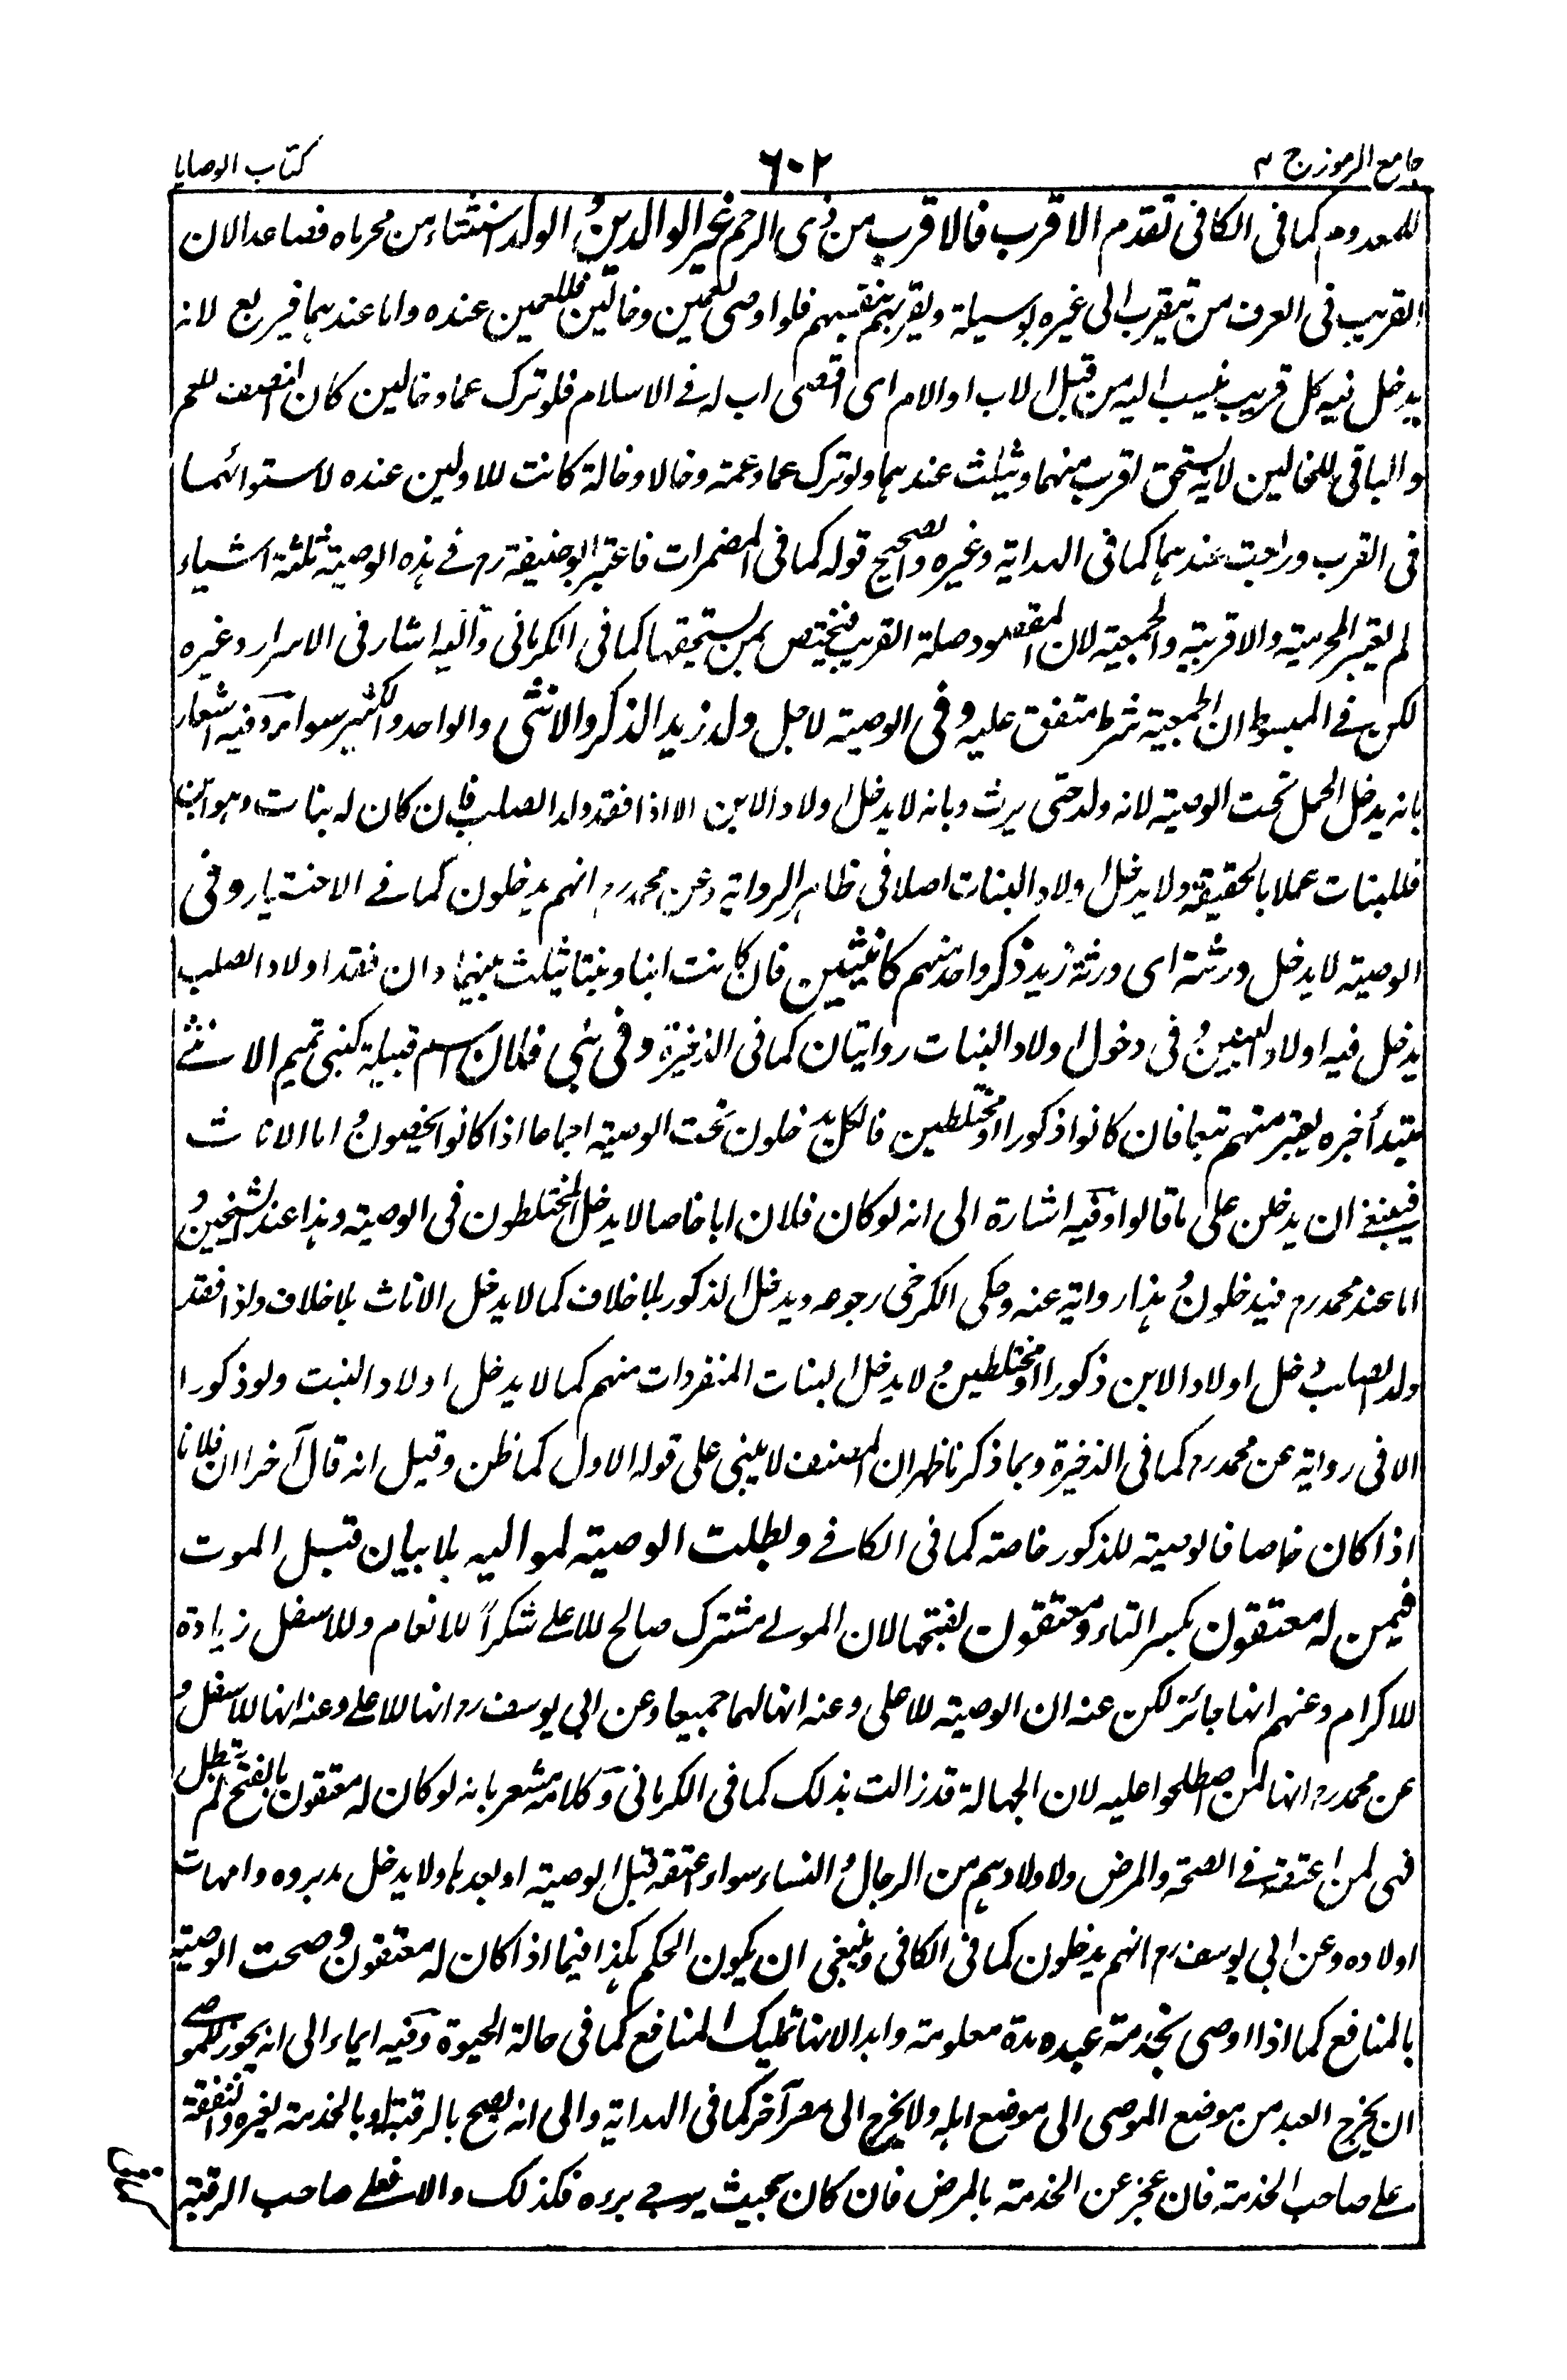 جامع الرموز ج ٣
٦٠٢
كتاب الوصايا
للمعدوم كما فى الكافى تقدم الاقرب فالاقرب من ذى الرحم غير الوالدين و الولد استثناء من محرماه فصاعدا لان
القريب فى العرف من يتقرب الى غيره بوسيلة وتقربهم بنفسهم فلو اوصى لعمين وخالين فللعمين عنده واما عندهما فيربع لانه
يدخل فيه كل قريب ينسب اليه من قبل الاب او الام اى اقصى اب له فى الاسلام فلو ترك عما وخالين كان النصف للعم
والباقى للخالين لانه يستحق لقرب منهما ويثلث عندهما ولو ترك عما وعمة وخالا وخالة كانت للاولين عنده لاستوائهما
فى القرب وربعت عندهما كما فى الهداية وغيره والصحيح قوله كما فى المضمرات فاعتبر ابو حنيفة رح فى هذه الوصية ثلثة اشياء
لم يعتبر المحرمية والاقربية والجمعية لان المقصود صلة القريب فيختص بمن يستحقها كما فى الكرمانى واليه اشار فى الاسرار وغيره
لكن فى المبسوط ان الجمعية شرط متفق عليه وفى الوصية لاجل ولد زيد الذكر والانثى والواحد والكثير سواء وفيه اشعار
بانه يدخل الحمل تحت الوصية لانه ولد حتى يرث وبانه لا يدخل اولاد الابن الا اذا فقد ولد الصلب فان كان له بنات وبنو ابن
فللبنات عملا بالحقيقة ولا يدخل اولاد البنات اصلا فى ظاهر الرواية وعن محمد رح انهم يدخلون كما فى الاختيار وفى
الوصية لا يدخل ورثته اى ورثة زيد ذكر واحد منهم كانثيين فان كانت ابنا وبنتا يثلث بينهما وان فقد اولاد الصلب
يدخل فيه اولاد البنين و فى دخول اولاد البنات روايتان كما فى الذخيرة وفى بنى فلان اسم قبيلة كبنى تميم الانثى
مبتدأ خبره يعتبر منهم تبعا فان كانوا ذكورا او مختلطين فالكل يدخلون تحت الوصية اجماعا اذا كانوا يحصون و اما الاناث
فينبغى ان يدخلن على ما قالوا وفيه اشارة الى انه لو كان فلان ابا خاصا لا يدخل المختلطون فى الوصية وهذا عند الشيخين و
اما عند محمد رح فيدخلون و هذا رواية عنه وحكى الكرخى رجوعه ويدخل الذكور بلا خلاف كما لا يدخل الاناث بلا خلاف واذا فقد
ولد الصلب دخل اولاد الابن ذكورا او مختلطين و لا يدخل البنات المنفردات منهم كما لا يدخل اولاد البنت ولو ذكورا
الا فى رواية عن محمد رح كما فى الذخيرة وبما ذكرنا ظهر ان المصنف لا يبنى على قوله الاول كما ظن وقيل انه قال آخرا ان فلانا
اذا كان خاصا فالوصية للذكور خاصة كما فى الكافى وبطلت الوصية لمواليه بلا بيان قبل الموت
فيمن له معتقون بكسر التاء ومعتقون بفتحها لان المولى مشترك صالح للاعلى شكراً للانعام وللاسفل زيادة
للاكرام وعنهم انها جائز لكن عنه ان الوصية للاعلى وعنه انها لهما جميعا وعن ابى يوسف رح انها للاعلى وعنه انها للاسفل و
عن محمد رح انها لمن اصطلحوا عليه لان الجهالة قد زالت بذلك كما فى الكرمانى وكلامه مشعر بانه لو كان له معتقون بالفتح لم تبطل
فهى لمن اعتقه فى الصحة والمرض ولاولادهم من الرجال و النساء سواء اعتقه قبل الوصية او بعدها ولا يدخل مدبروه وامهات
اولاده وعن ابى يوسف رح انهم يدخلون كما فى الكافى وينبغى ان يكون الحكم هكذا فيما اذا كان له معتقون وصحت الوصية
بالمنافع كما اذا اوصى بخدمة عبده مدة معلومة وابدا لانها تمليك المنافع كما فى حالة الحيوة وفيه ايماء الى انه يجوز للموصى
ان يخرج العبد من موضع الموصى الى موضع اهله ولا يخرج الى مصر آخر كما فى الهداية والى انه يصح بالرقبة له وبالخدمة لغيره والنفقة
على صاحب الخدمة فان عجز عن الخدمة بالمرض فان كان بحيث يرجى برءه فكذلك والا فعلى صاحب الرقبة